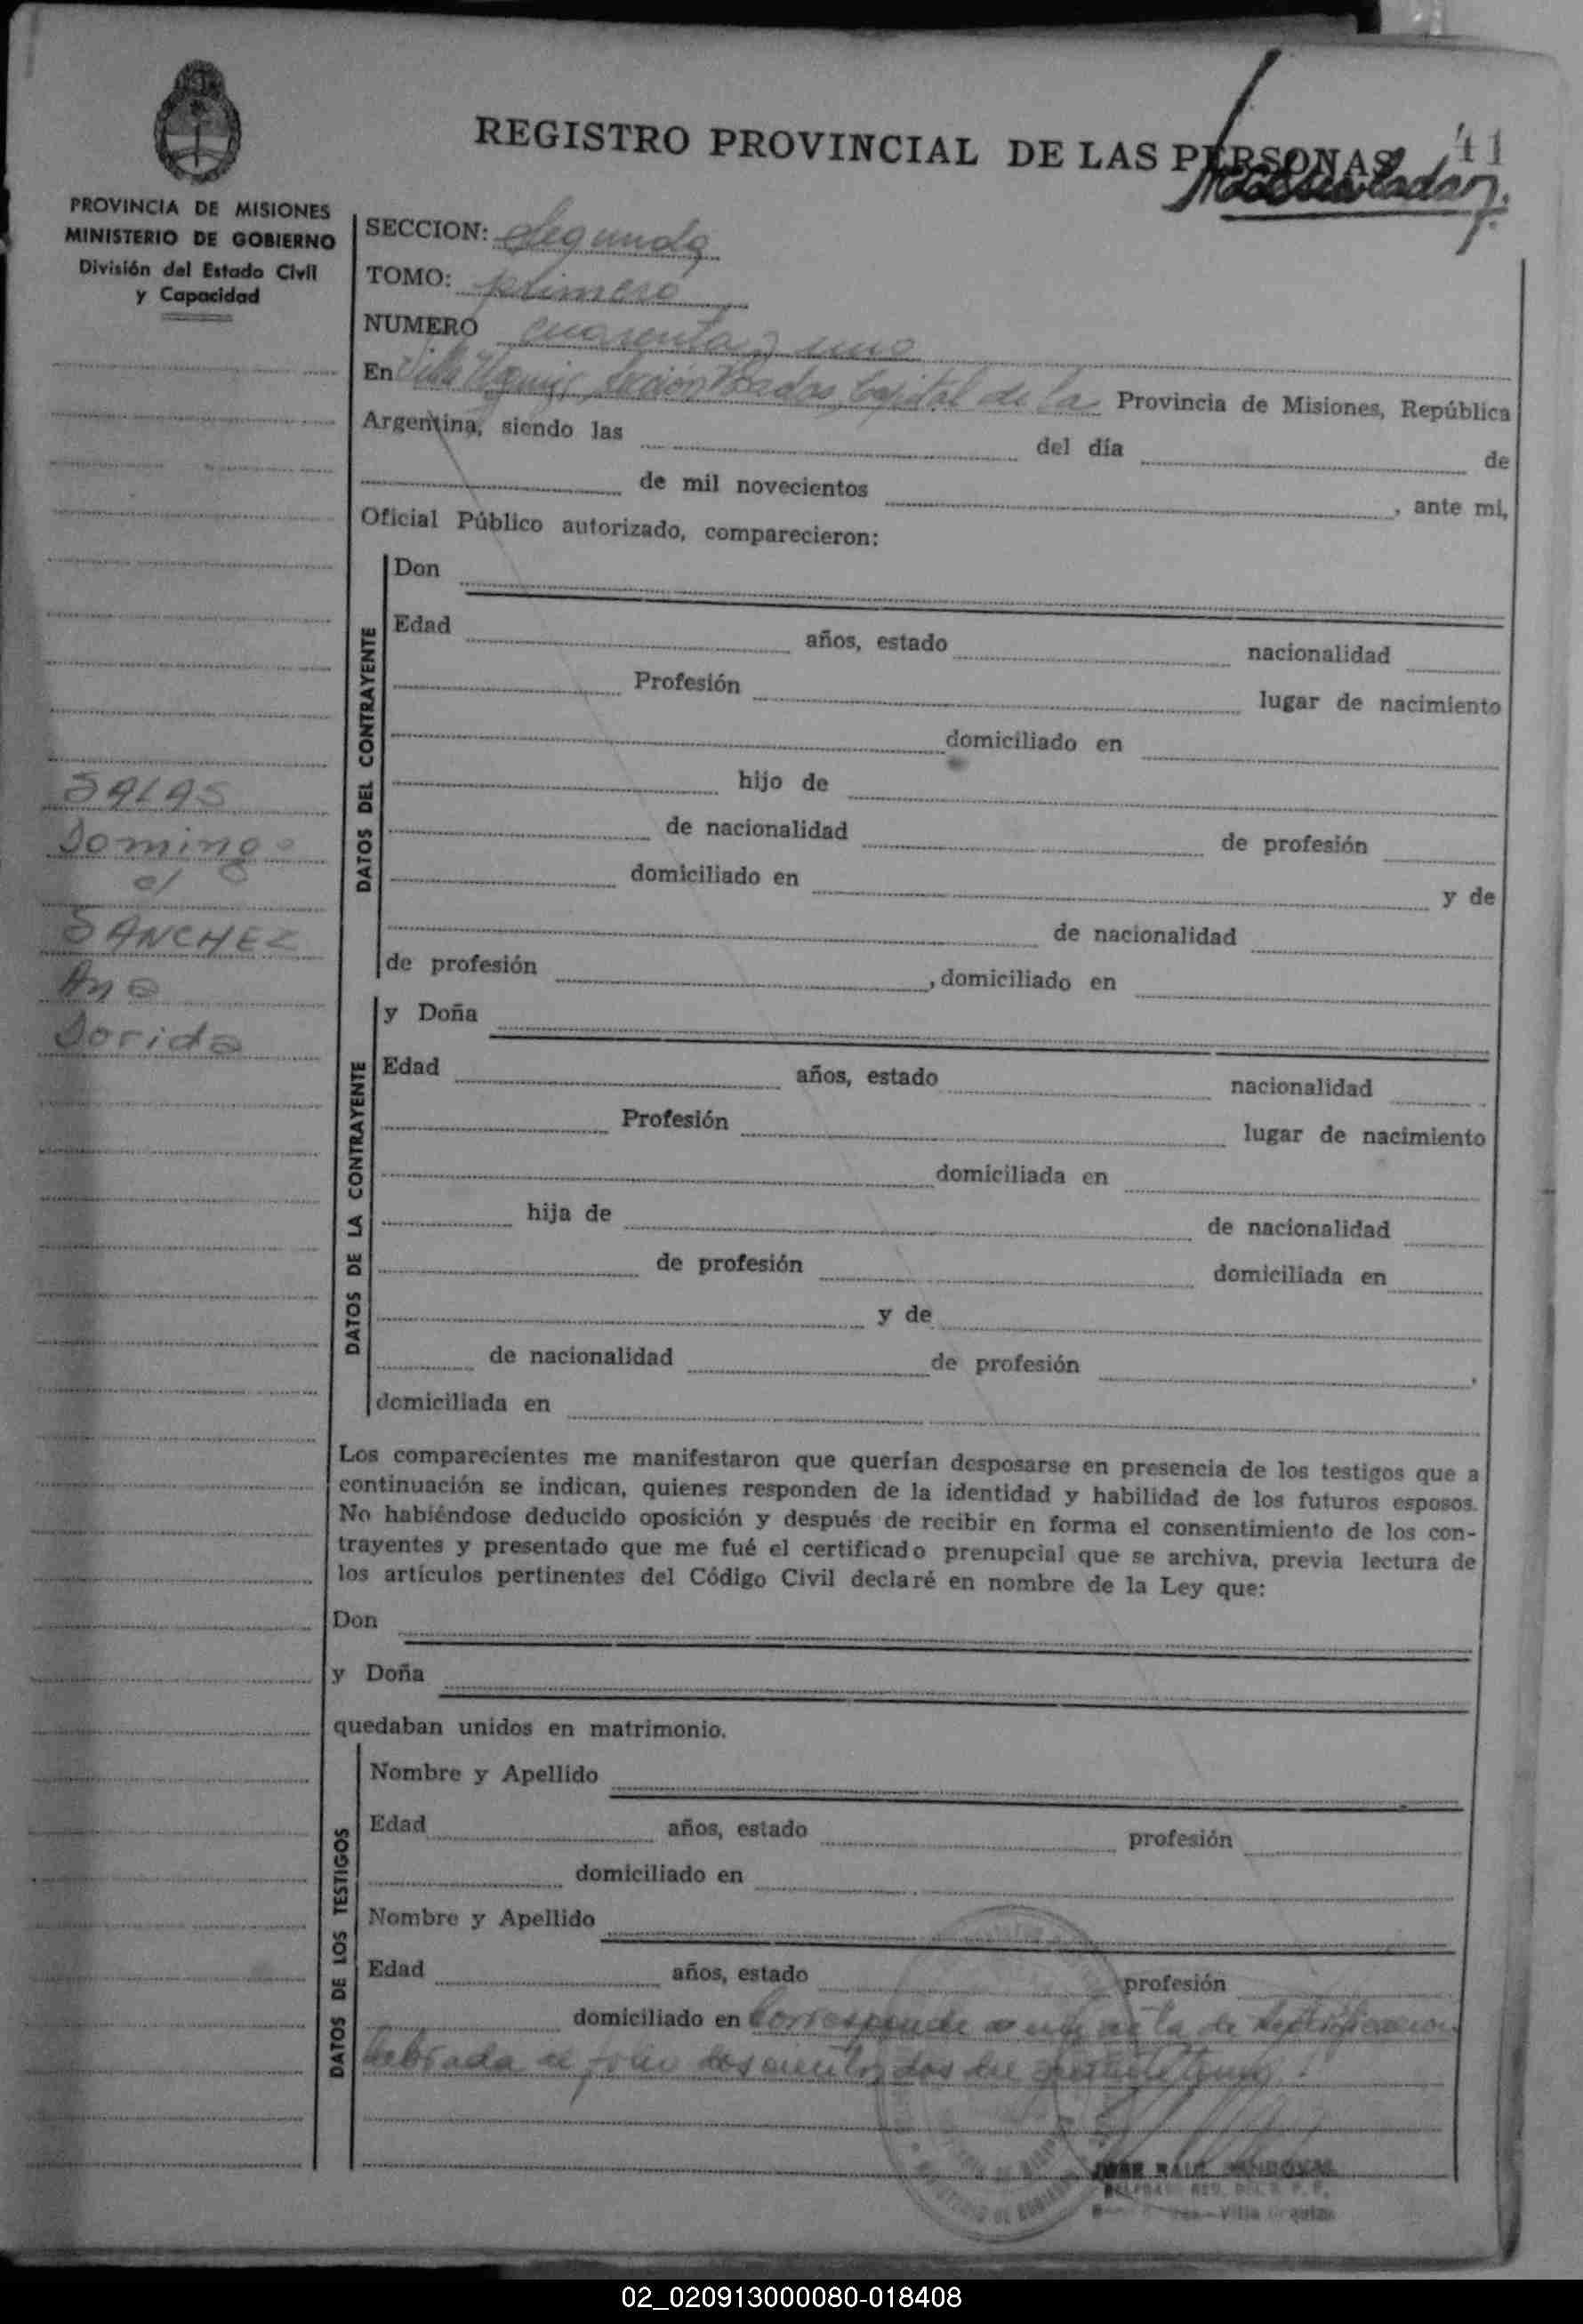 REGISTRO PROVINCIAL DE LAS PERSONAS
41
PROVINCIA DE MISIONES
MINISTERIO DE GOBIERNO
División del Estado Civil
y Capacidad
SECCION: Segunda
TOMO: primero
NUMERO cuarenta y uno
En Villa Urquiza, Sección Posadas, Capital de la Provincia de Misiones, República
Argentina, siendo las del día de
de mil novecientos , ante mi,
Oficial Público autorizado, comparecieron:
DATOS DEL CONTRAYENTE
Don
Edad años, estado nacionalidad
Profesión lugar de nacimiento
domiciliado en
hijo de
de nacionalidad de profesión
domiciliado en y de
de nacionalidad
de profesión , domiciliado en
SALAS
Domingo
c/
SANCHEZ
Ana
Dorida
DATOS DE LA CONTRAYENTE
y Doña
Edad años, estado nacionalidad
Profesión lugar de nacimiento
domiciliada en
hija de de nacionalidad
de profesión domiciliada en
y de
de nacionalidad de profesión ,
domiciliada en
Los comparecientes me manifestaron que querían desposarse en presencia de los testigos que a
continuación se indican, quienes responden de la identidad y habilidad de los futuros esposos.
No habiéndose deducido oposición y después de recibir en forma el consentimiento de los con-
trayentes y presentado que me fué el certificado prenupcial que se archiva, previa lectura de
los artículos pertinentes del Código Civil declaré en nombre de la Ley que:
Don
y Doña
quedaban unidos en matrimonio.
DATOS DE LOS TESTIGOS
Nombre y Apellido
Edad años, estado profesión
domiciliado en
Nombre y Apellido
Edad años, estado profesión
domiciliado en Corresponde a un acta de
labrada al folio doscientos dos del
Villa Urquiza
02_020913000080-018408